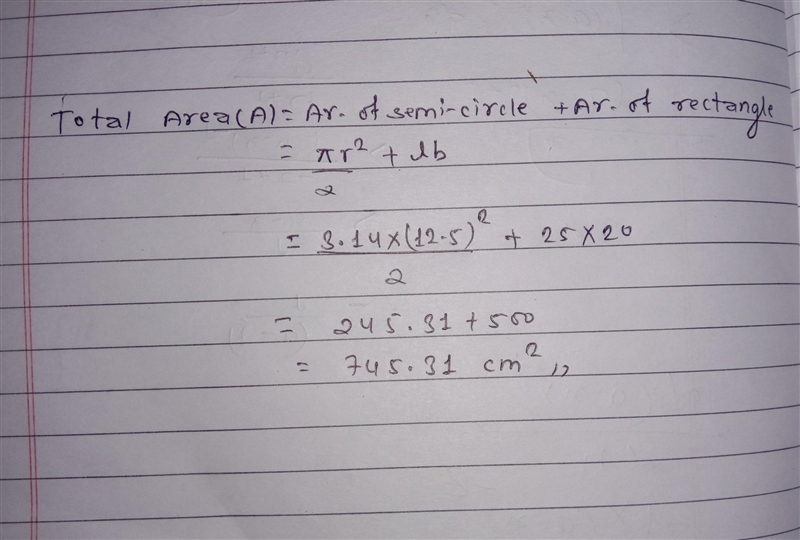 Total Area(A) = Ar. of semi-circle + Ar. of rectangle
= πr² / 2 + lb
= 3.14×(12.5)² / 2 + 25×20
= 245.31 + 500
= 745.31 cm²,,